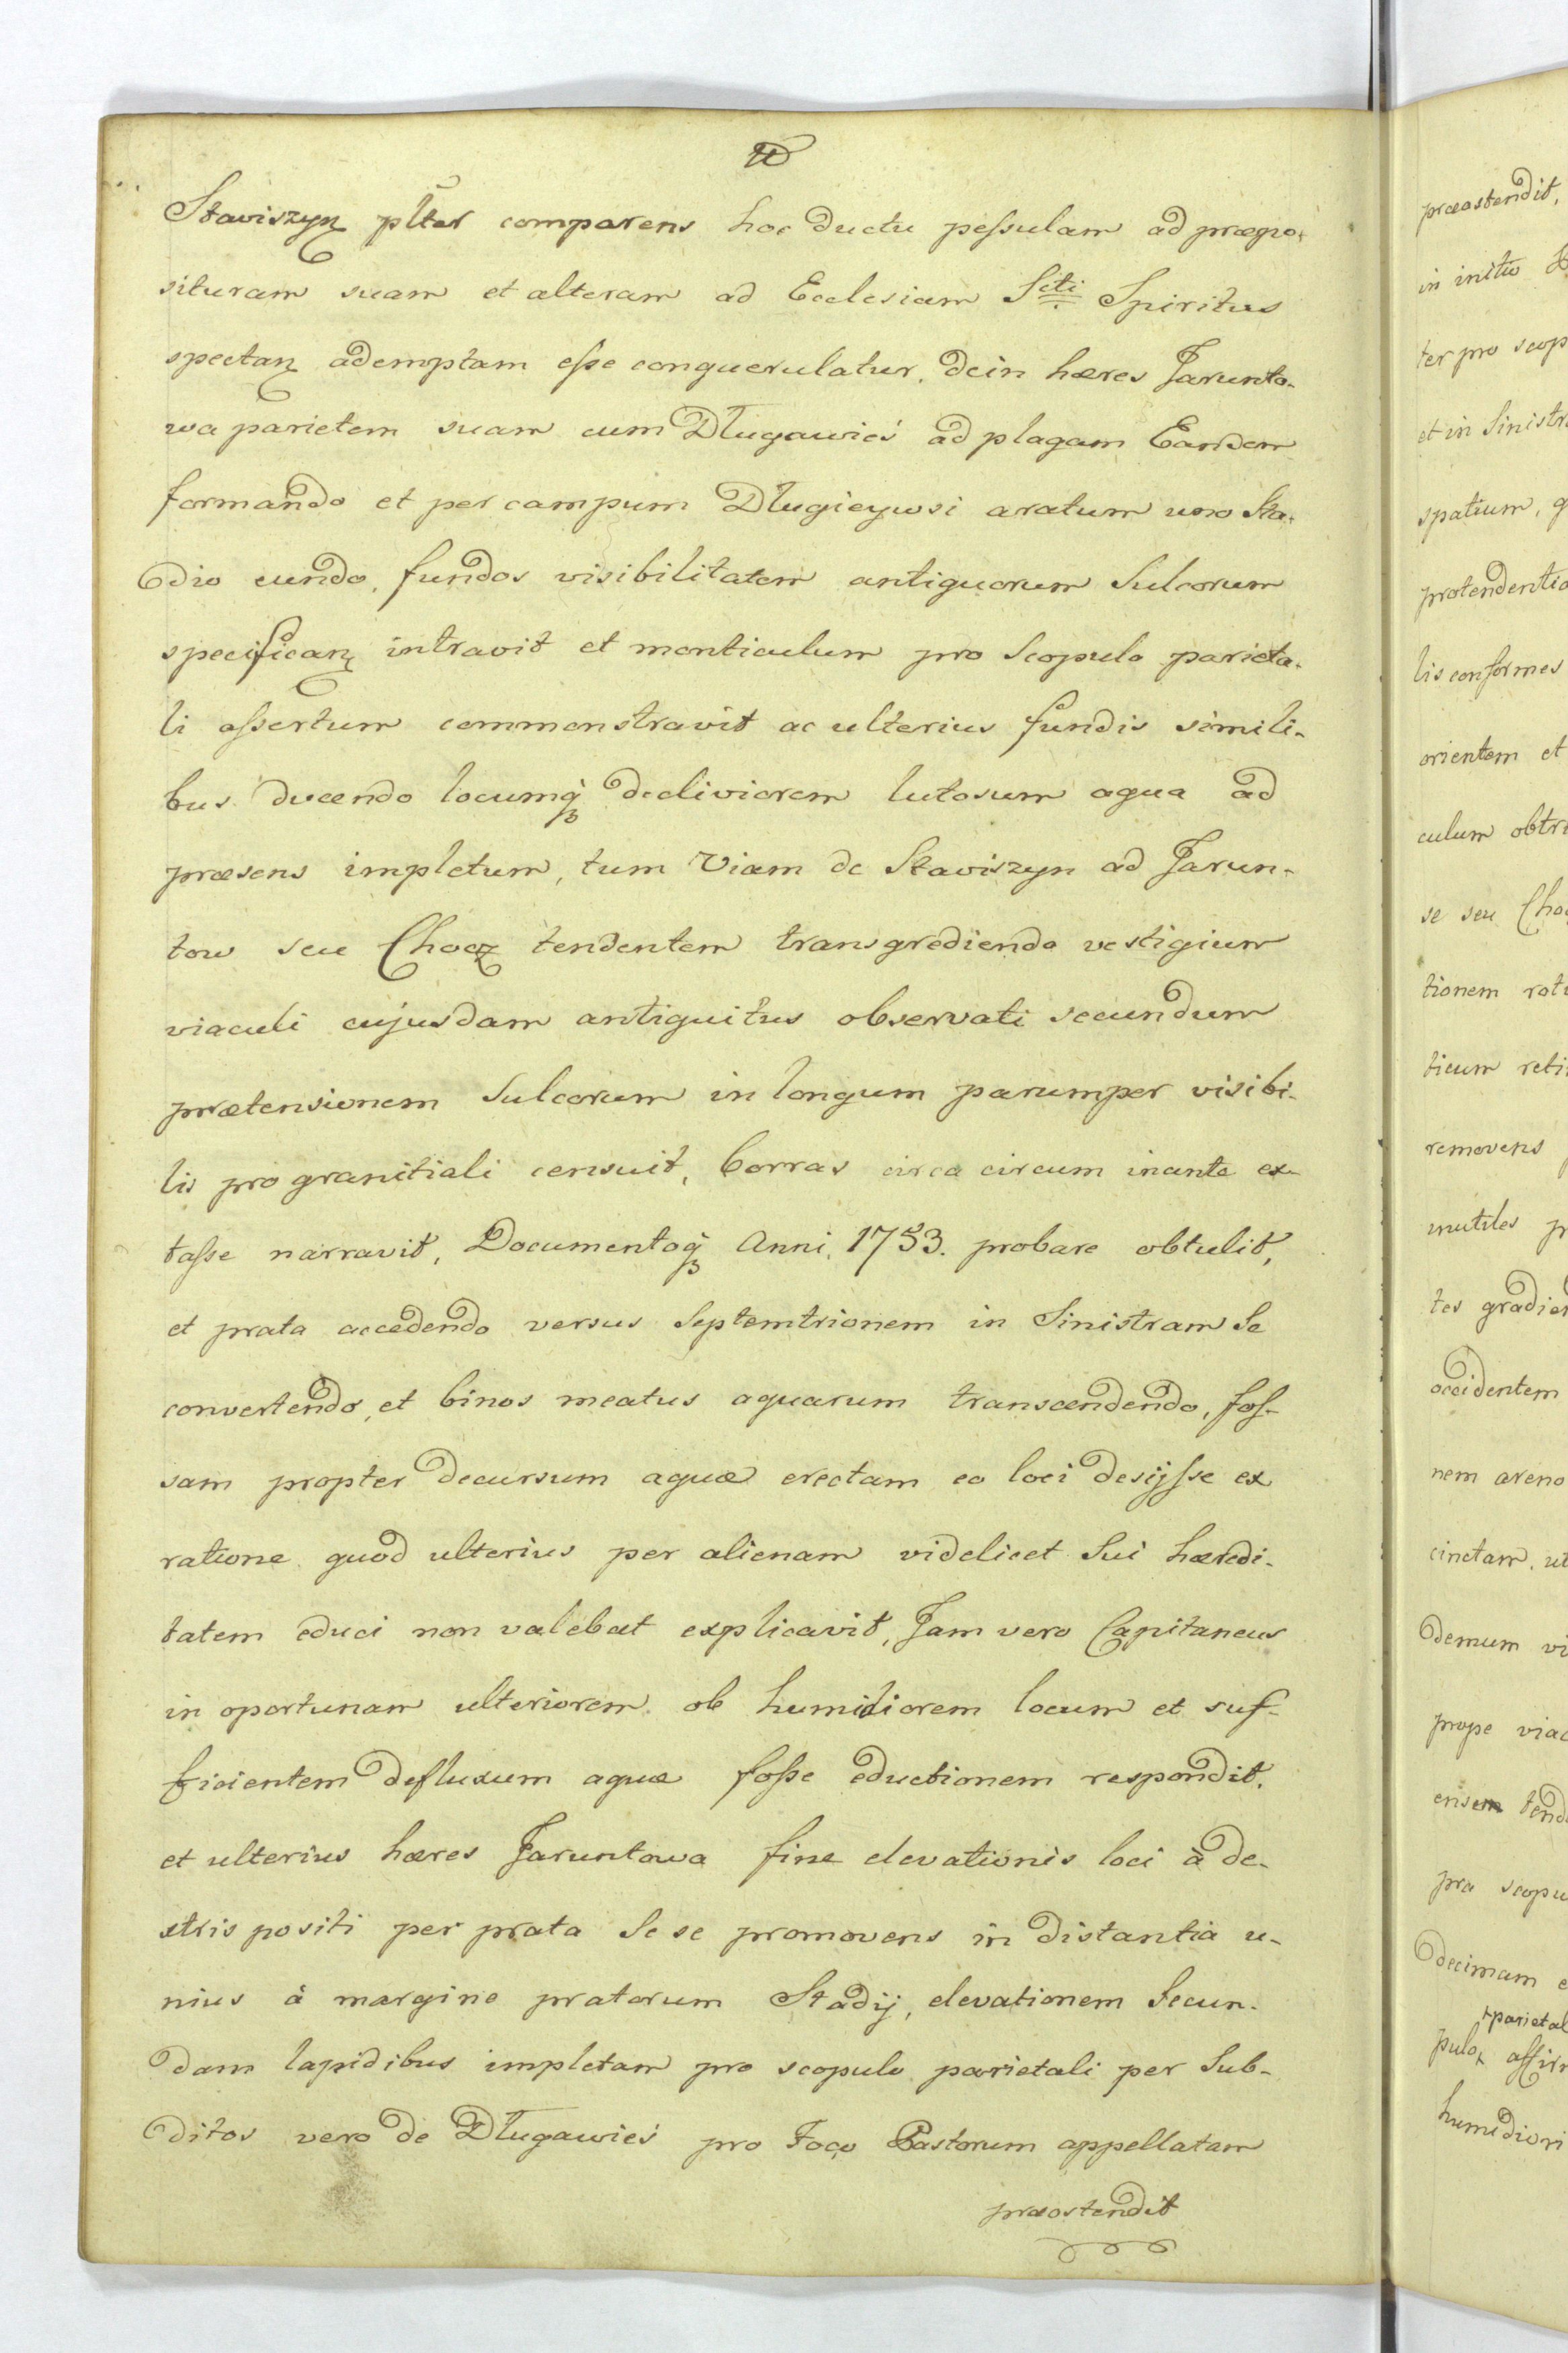 Staviszyn plter comparens hoc ductu pessulam ad præpo-
situram suam et alteram ad Ecclesiam Scti Spiritus
spectan ademptam esse conquerulatur, dein hæres Jarunto-
wa parietem suam cum Długawieś ad plagam Eandem
formando et per campum Długieywsi aratum uno Sta-
dio eundo, fundos visibilitatem antiquorum Sulcorum
specifican intravit et monticulum pro Scopulo parieta-
li assertum commonstravit ac ulterius fundis simili-
bus ducendo locumq decliviorem lutosum aqua ad
præsens impletum, tum Viam de Staviszyn ad Jarun-
tow seu Chocz tendentem transgrediendo vestigium
viaculi cujusdam antiquitus observati secundum
prætensionem Sulcorum in longum parumper visibi-
lis pro granitiali censuit, Corras circa circum inante ex-
tasse narravit, Documentoq Anni 1753. probare obtulit,
et prata accedendo versus Septemtrionem in Sinistram Se
convertendo, et binos meatus aquarum transcendendo, fos-
sam propter decursum aquæ erectam eo loci desijsse ex
ratione quod ulterius per alienam videlicet Sui hæredi-
tatem educi non valebat explicavit, Jam vero Capitaneus
in oportunam ulteriorem ob humidiorem locum et suf-
ficientem defluxum aquæ fosse eductionem respondit.
et ulterius hæres Jaruntowa fine elevationis loci à de-
xtris positi per prata Se se promovens in distantia u-
nius à margine pratorum Stadij, elevationem Secun-
dam lapidibus impletam pro scopulo parietali per Sub-
ditos vero de Długawieś pro Foco Pastorum appellatam
præostendit
præostendit,
in initio
ter pro scop
et in Sinistr
spatium, q
protendentio
lis conformes
orientem et
culum obtr
se seu Cho
tionem rot
ticum reti
removens
inutiles p
tes gradien
occidentem
nem areno
cinctam, ut
demum vi
prope viac
ensem tend
pro scopu
decimam e
parietal
pulo affir
humidiori